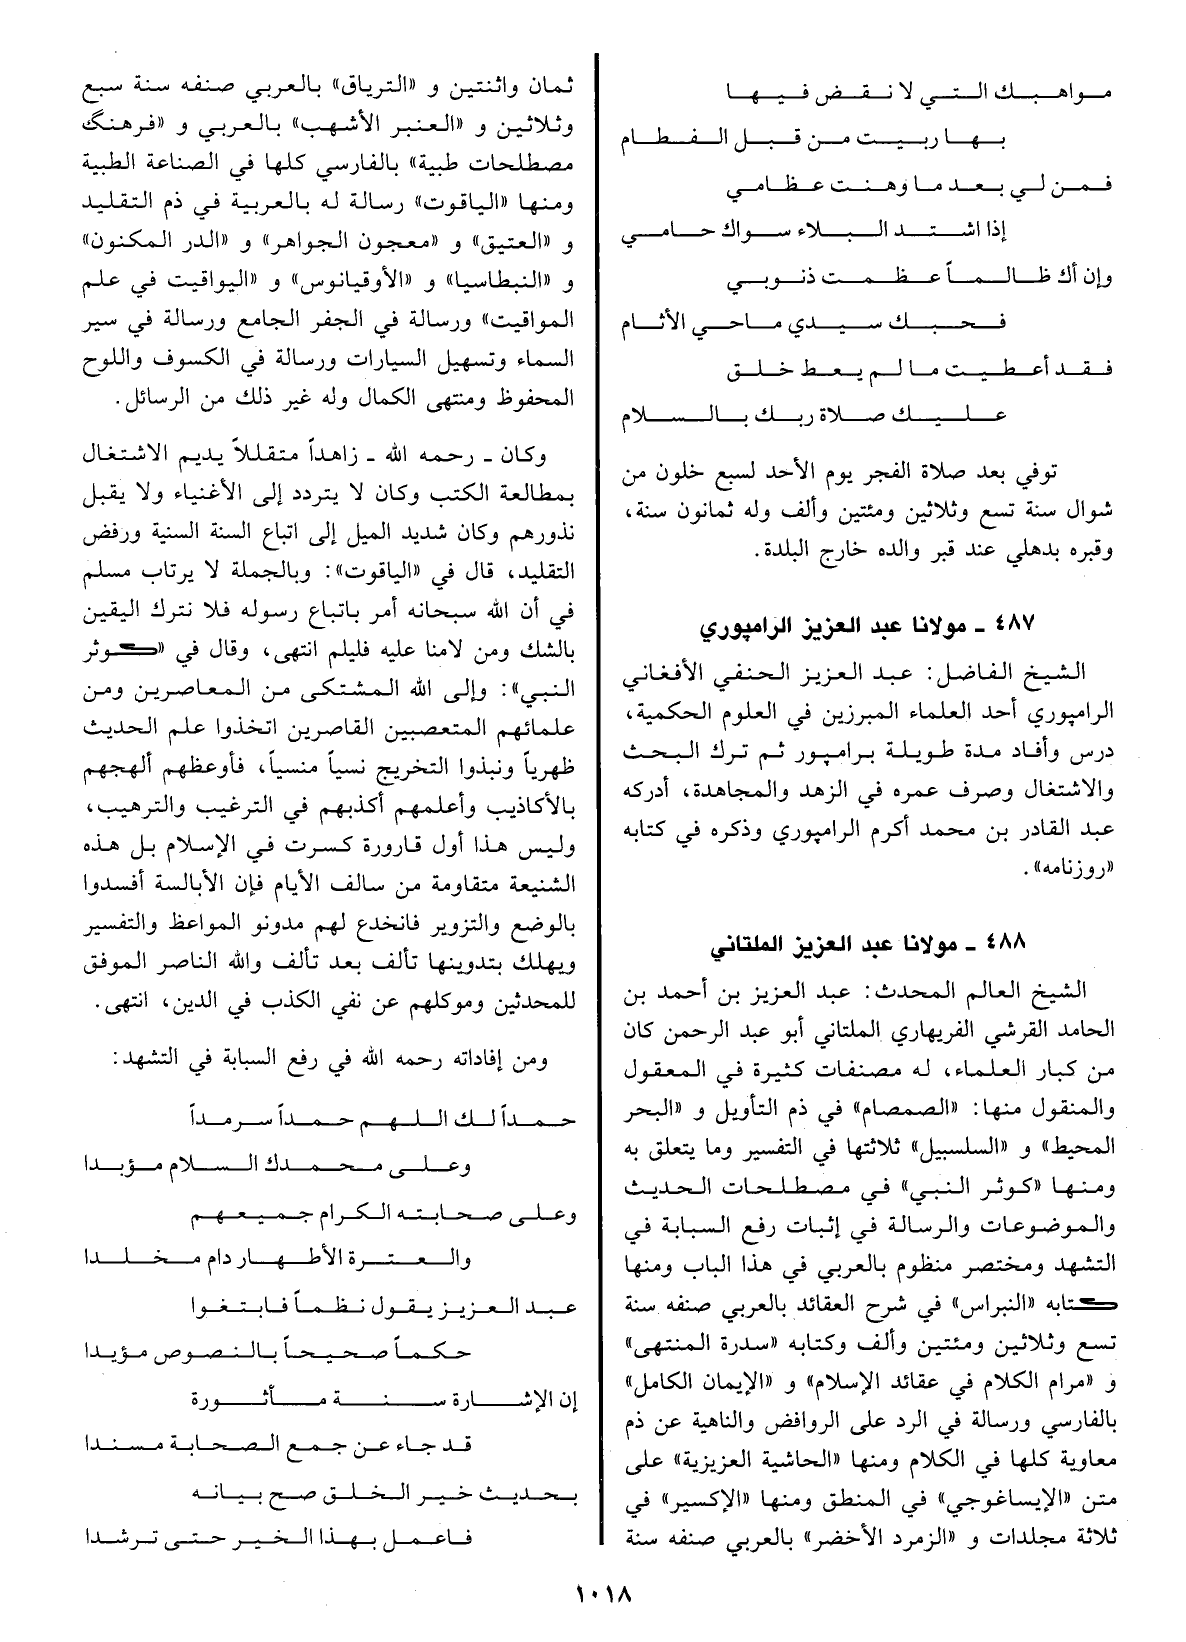 مواهبك التي لا نقض فيها
بها ربيت من قبل الفطام
فمن لي بعد ما وهنت عظامي
إذا اشتد البلاء سواك حامي
وإن أك ظالماً عظمت ذنوبي
فحبك سيدي ماحي الأثام
فقد أعطيت ما لم يعط خلق
عليك صلاة ربك بالسلام
توفي بعد صلاة الفجر يوم الأحد لسبع خلون من
شوال سنة تسع وثلاثين ومئتين وألف وله ثمانون سنة،
وقبره بدهلي عند قبر والده خارج البلدة.
٤٨٧ ـ مولانا عبد العزيز الرامپوري
الشيخ الفاضل: عبد العزيز الحنفي الأفغاني
الرامپوري أحد العلماء المبرزين في العلوم الحكمية،
درس وأفاد مدة طويلة برامپور ثم ترك البحث
والاشتغال وصرف عمره في الزهد والمجاهدة، أدركه
عبد القادر بن محمد أكرم الرامپوري وذكره في كتابه
«روزنامه».
٤٨٨ ـ مولانا عبد العزيز الملتاني
الشيخ العالم المحدث: عبد العزيز بن أحمد بن
الحامد القرشي الفريهاري الملتاني أبو عبد الرحمن كان
من كبار العلماء، له مصنفات كثيرة في المعقول
والمنقول منها: «الصمصام» في ذم التأويل و «البحر
المحيط» و «السلسبيل» ثلاثتها في التفسير وما يتعلق به
ومنها «كوثر النبي» في مصطلحات الحديث
والموضوعات والرسالة في إثبات رفع السبابة في
التشهد ومختصر منظوم بالعربي في هذا الباب ومنها
كتابه «النبراس» في شرح العقائد بالعربي صنفه سنة
تسع وثلاثين ومئتين وألف وكتابه «سدرة المنتهى»
و «مرام الكلام في عقائد الإسلام» و «الإيمان الكامل»
بالفارسي ورسالة في الرد على الروافض والناهية عن ذم
معاوية كلها في الكلام ومنها «الحاشية العزيزية» على
متن «الايساغوجي» في المنطق ومنها «الإكسير» في
ثلاثة مجلدات و «الزمرد الأخضر» بالعربي صنفه سنة
ثمان واثنتين و «الترياق» بالعربي صنفه سنة سبع
وثلاثين و «العنبر الأشهب» بالعربي و «فرهنگ
مصطلحات طبية» بالفارسي كلها في الصناعة الطبية
ومنها «الياقوت» رسالة له بالعربية في ذم التقليد
و «العتيق» و «معجون الجواهر» و «الدر المكنون»
و «النبطاسيا» و «الأوقيانوس» و «اليواقيت في علم
المواقيت» ورسالة في الجفر الجامع ورسالة في سير
السماء وتسهيل السيارات ورسالة في الكسوف واللوح
المحفوظ ومنتهى الكمال وله غير ذلك من الرسائل.
وكان ـ رحمه الله ـ زاهداً متقللاً يديم الاشتغال
بمطالعة الكتب وكان لا يتردد إلى الأغنياء ولا يقبل
نذورهم وكان شديد الميل إلى اتباع السنة السنية ورفض
التقليد، قال في «الياقوت»: وبالجملة لا يرتاب مسلم
في أن الله سبحانه أمر باتباع رسوله فلا نترك اليقين
بالشك ومن لامنا عليه فليلم انتهى، وقال في «كوثر
النبي»: وإلى الله المشتكى من المعاصرين ومن
علمائهم المتعصبين القاصرين اتخذوا علم الحديث
ظهرياً ونبذوا التخريج نسياً منسياً، فأوعظهم ألهجهم
بالأكاذيب وأعلمهم أكذبهم في الترغيب والترهيب،
وليس هذا أول قارورة كسرت في الإسلام بل هذه
الشنيعة متقاومة من سالف الأيام فإن الأبالسة أفسدوا
بالوضع والتزوير فانخدع لهم مدونو المواعظ والتفسير
ويهلك بتدوينها تألف بعد تألف والله الناصر الموفق
للمحدثين وموكلهم عن نفي الكذب في الدين، انتهى.
ومن إفاداته رحمه الله في رفع السبابة في التشهد:
حمداً لك اللهم حمداً سرمداً
وعلى محمدك السلام مؤبدا
وعلى صحابته الكرام جميعهم
والعترة الأطهار دام مخلدا
عبد العزيز يقول نظماً فابتغوا
حكماً صحيحاً بالنصوص مؤيدا
إن الإشارة سنة مأثورة
قد جاء عن جمع الصحابة مسندا
بحديث خير الخلق صح بيانه
فاعمل بهذا الخير حتى ترشدا
١٠١٨